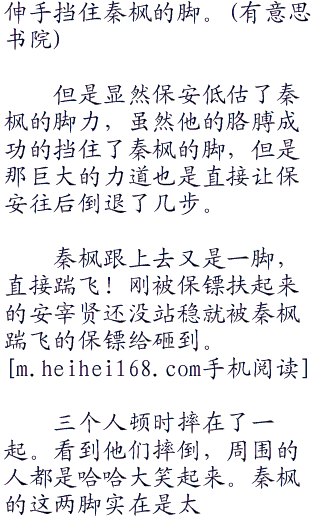 伸手挡住秦枫的脚。(有意思
书院)
但是显然保安低估了秦
枫的脚力，虽然他的胳膊成
功的挡住了秦枫的脚，但是
那巨大的力道也是直接让保
安往后倒退了几步。
秦枫跟上去又是一脚，
直接踹飞！刚被保镖扶起来
的安宰贤还没站稳就被秦枫
踹飞的保镖给砸到。
[m.heihei168.com手机阅读]
三个人顿时摔在了一
起。看到他们摔倒，周围的
人都是哈哈大笑起来。秦枫
的这两脚实在是太